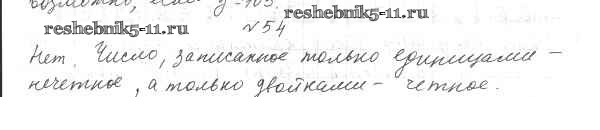 возможно, если y = 105.
reshebnik5-11.ru
reshebnik5-11.ru
№ 54
Нет. Число, записанное только единицами –
нечетное, а только двойками – четное.